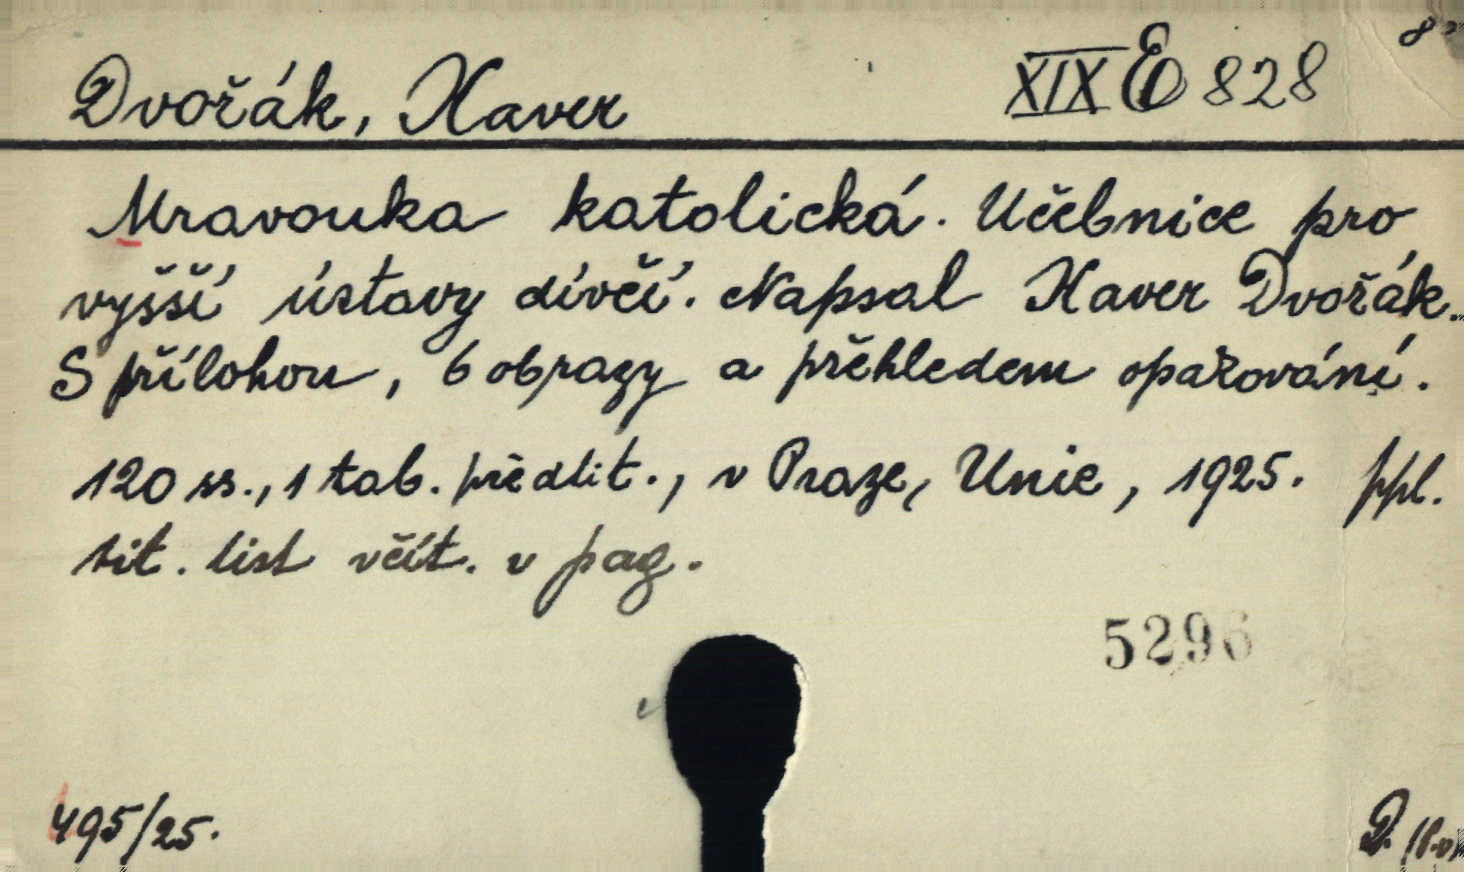 Dvořák, Xaver XIX E 828
Mravouka katolická. Učebnice pro
vyšší ústavy dívčí. Napsal Xaver Dvořák.
S přílohou, 6 obrazy a přěhledem opařování.
120 ss., 1 tab. před tit., v Praze, Unie, 1925. ppl.
tit. list včít. v pag.
5296
495/25.